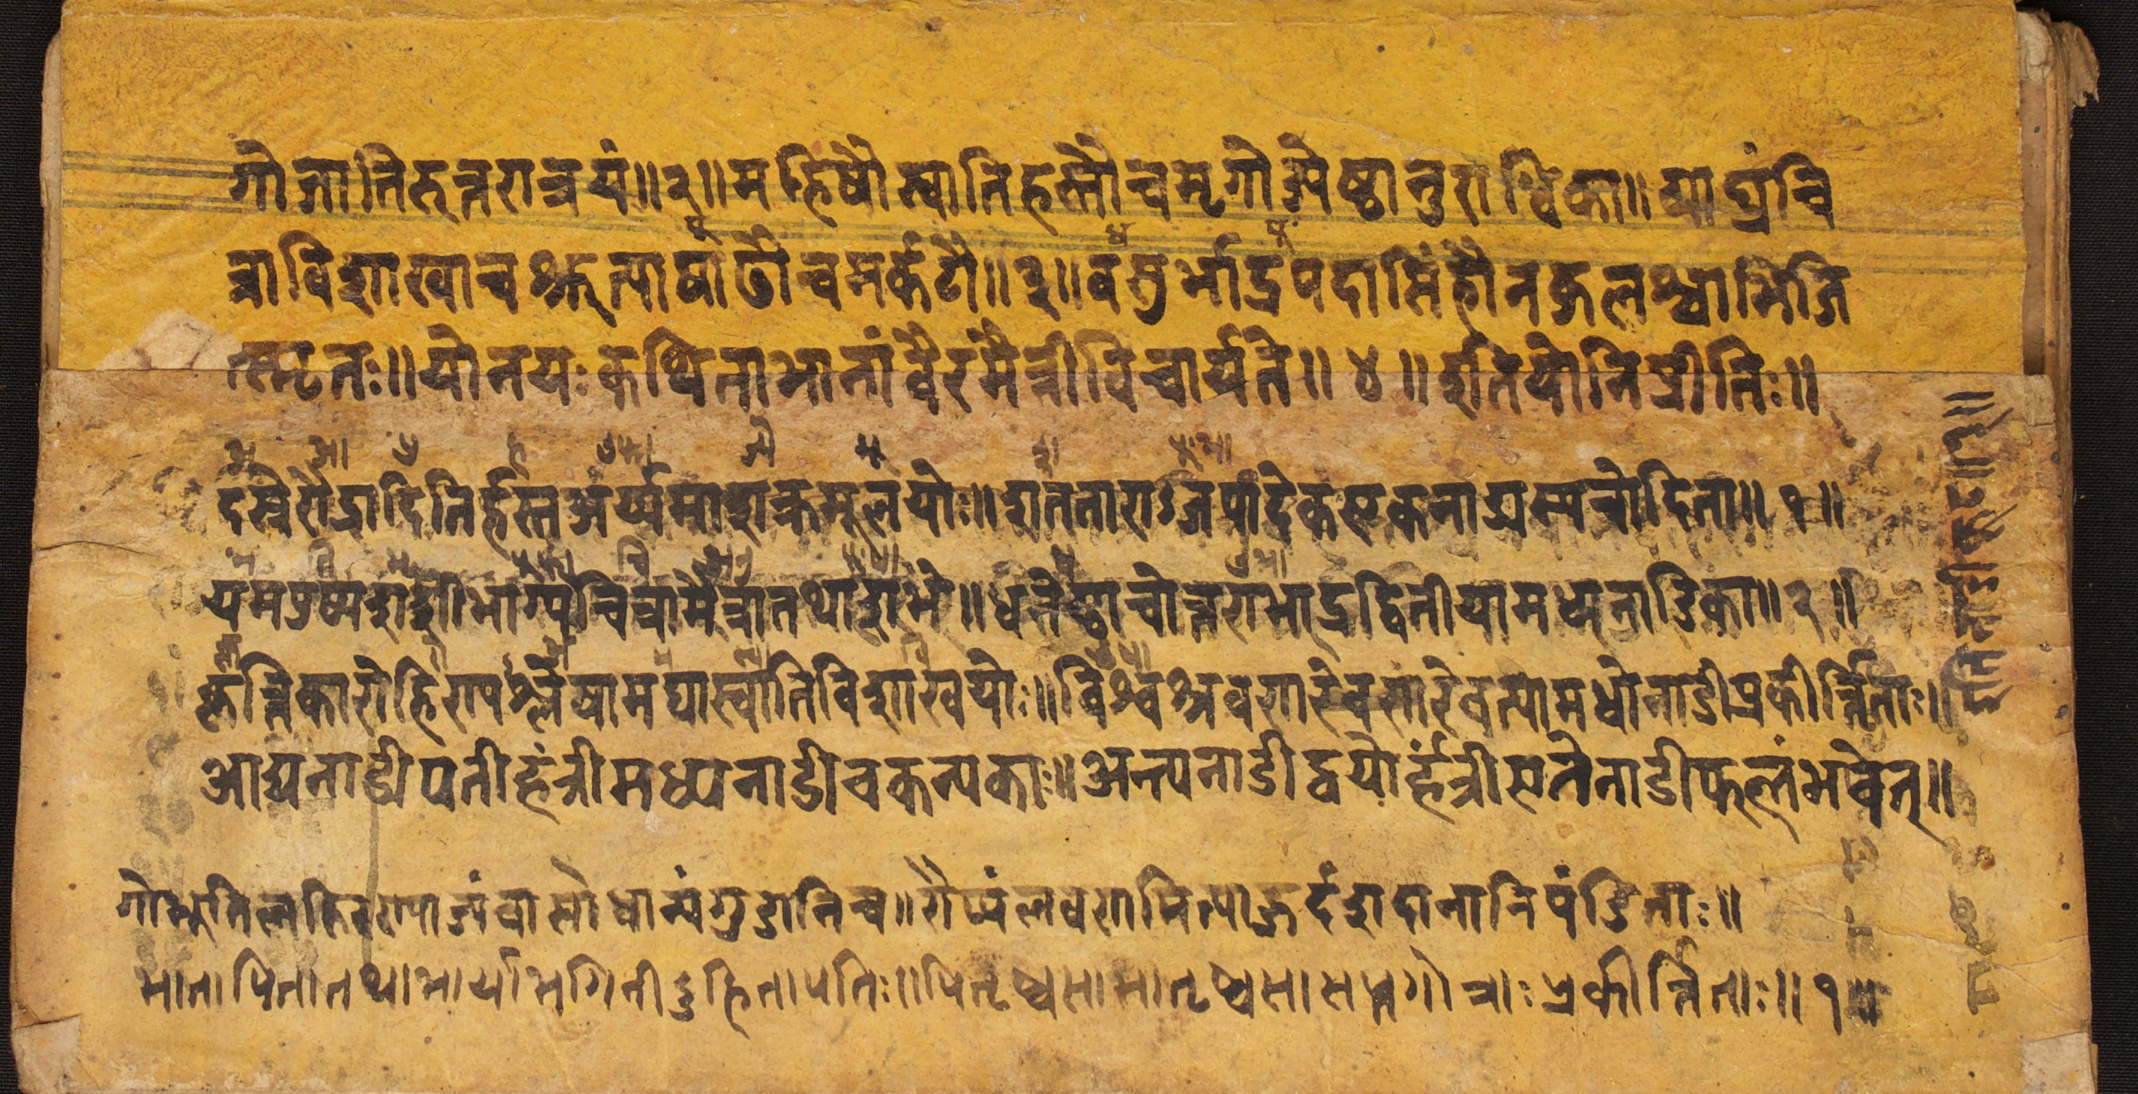 गोजातिरुत्तरात्रयं॥२॥महिषौस्वातिहस्तौचमृगोज्येष्ठानुराधिका॥व्याघ्रचि
त्राविशाखाचश्रुत्याषाढौचमर्कटौ॥३॥वसुर्भाद्रपदासिंहौनकुलश्चाभिजि
त्स्मृतः॥योनयःकथिताभानांवैरमैत्रीविचार्यते॥४॥इतियोनिप्रीतिः॥
दस्ररौद्रादितिर्हस्तअर्य्यमाशक्रमूलयोः॥शतताराऽजपादेकएकनाद्यस्यचोदिता॥१॥
यमपुष्यशशीभाग्यचित्रामैत्रातथाशुभे॥धनेष्ठाचोत्तराभाद्रद्वितीयामध्यनाडिका॥२॥
कृत्तिकारोहिणपश्लेषामघास्वातिविशाखयोः॥विश्वश्रवणारेवत्यामधोनाडीप्रकीर्त्तिताः॥
आद्यनाडीपतीहंत्रीमध्यनाडीचकन्यकाः॥अन्यनाडीद्वयोर्हंत्रीएतेनाडीफलंभवेत्॥
गोभूतिलहिरण्याज्यंवासोधान्यंगुडानिच॥रौप्यंलवणमित्याहुर्दशदानानिपंडिताः॥
मातापितातथाभार्याभगिनीदुहितापतिः॥पितृष्वसामातृष्वसासप्तगोत्राःप्रकीर्त्तिताः॥१॥